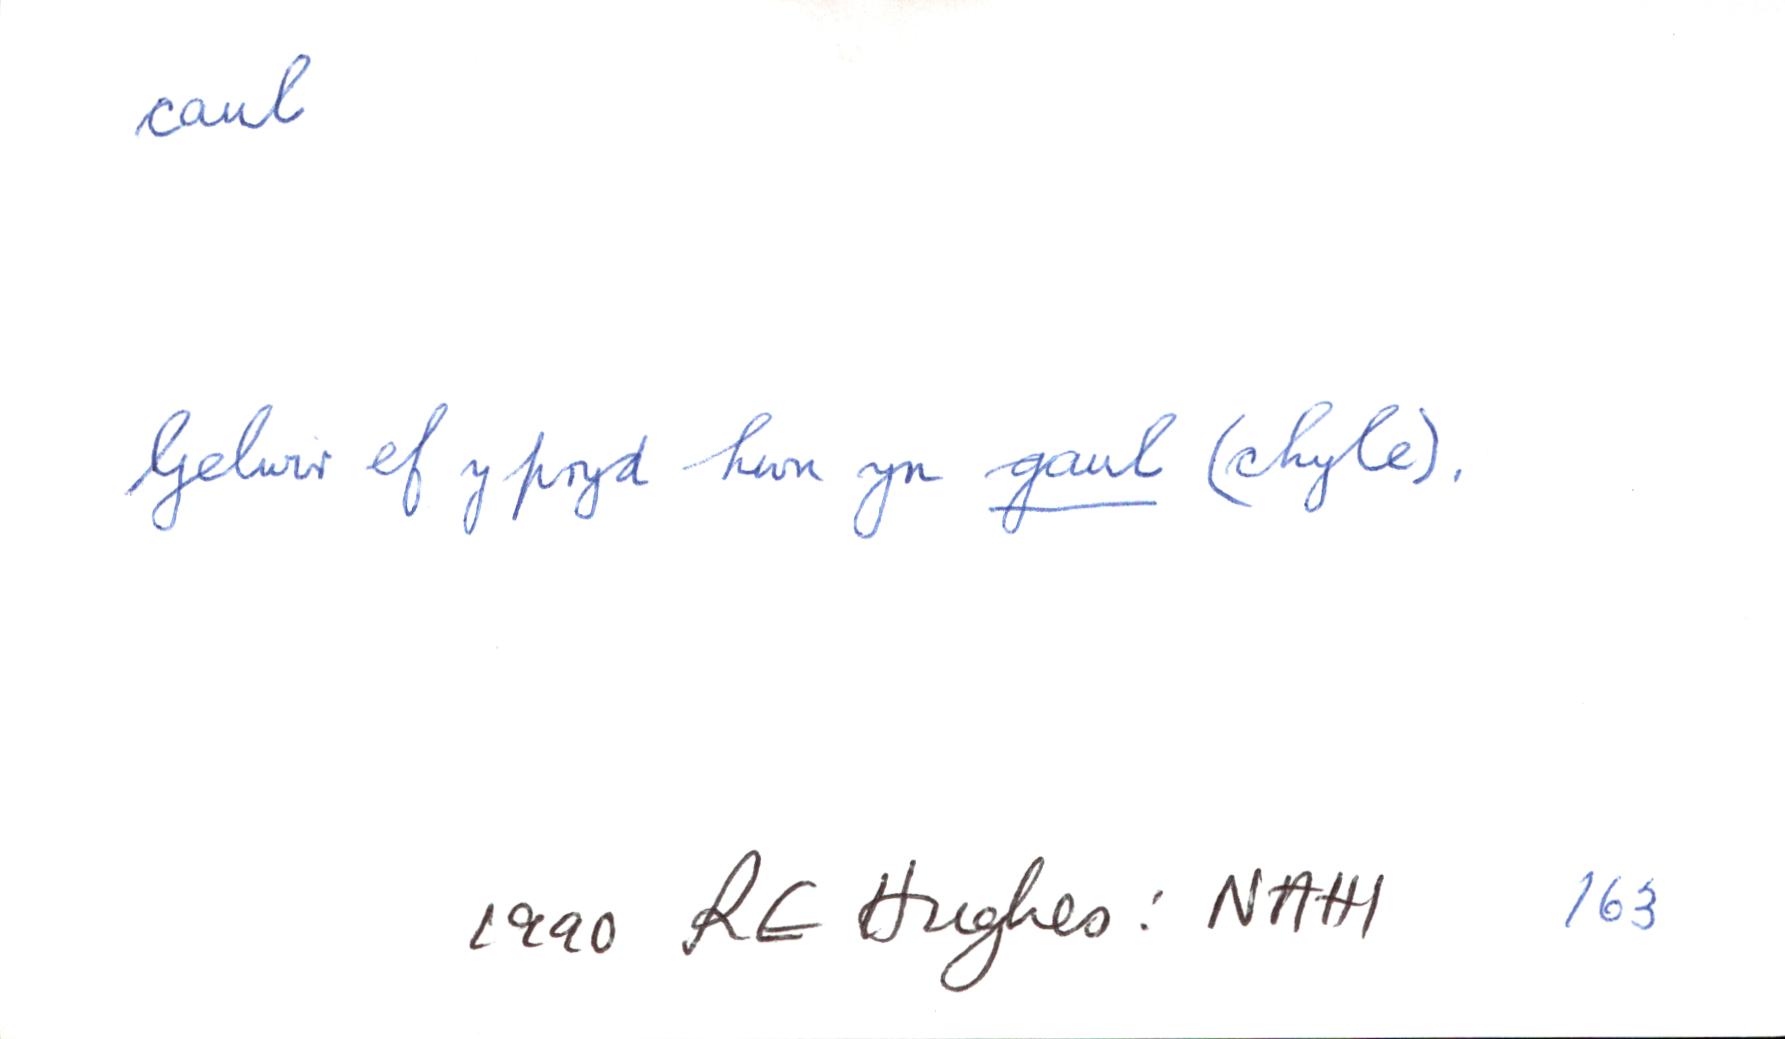 caul
Gelwir ef y pryd hwn yn gaul (chyle).
1990 RE Hughes: NAHH 163